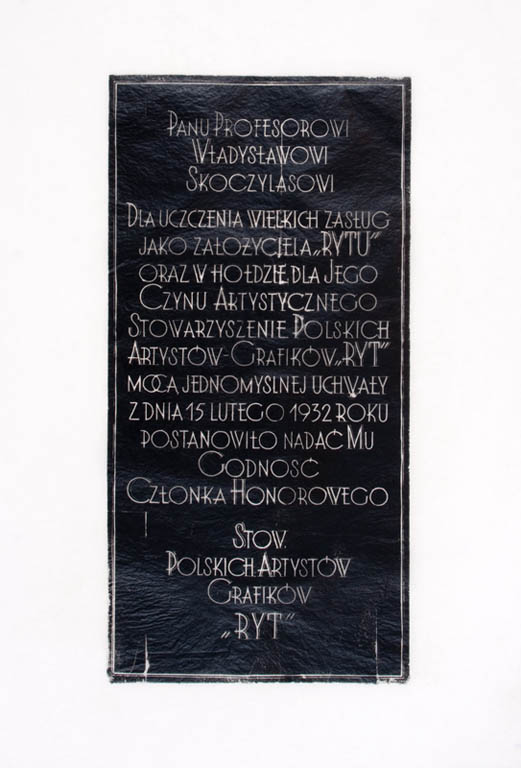 Panu Profesorowi
Władysławowi
Skoczylasowi
Dla uczczenia wielkich zasług
jako założyciela „RYTU”
oraz w hołdzie dla Jego
Czynu Artystycznego
Stowarzyszenie Polskich
Artystów-Grafików „RYT”
mocą jednomyślnej uchwały
z dnia 15 lutego 1932 roku
postanowiło nadać Mu
Godność
Członka Honorowego
Stow.
Polskich Artystów
Grafików
„RYT”